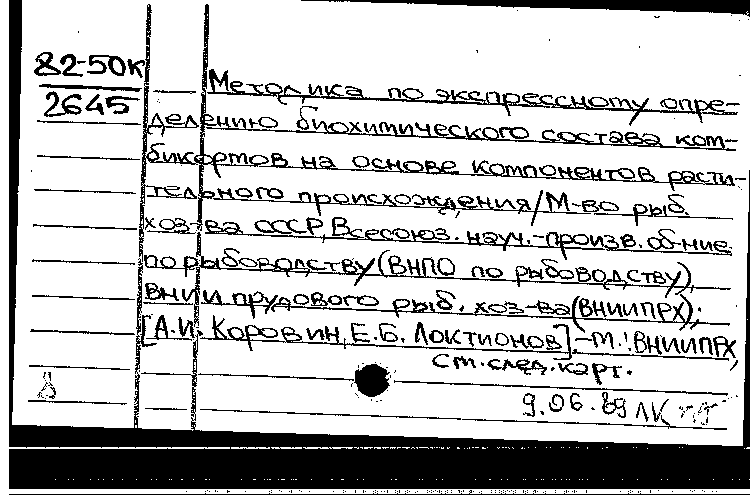 82-50К
2645
Методика по экспрессному опре-
делению биохимического состава ком-
бикормов на основе компонентов расти-
тельного происхождения/М-во рыб.
хоз-ва СССР, Всесоюз. науч.-произв. об-ние
по рыбоводству (ВНПО по рыбоводству),
ВНИИ прудового рыб. хоз-ва (ВНИИПРХ);
[А.И. Коровин, Е.Б. Локтионов].-М.: ВНИИПРХ,
см. след. карт.
9.06.89 ЛК